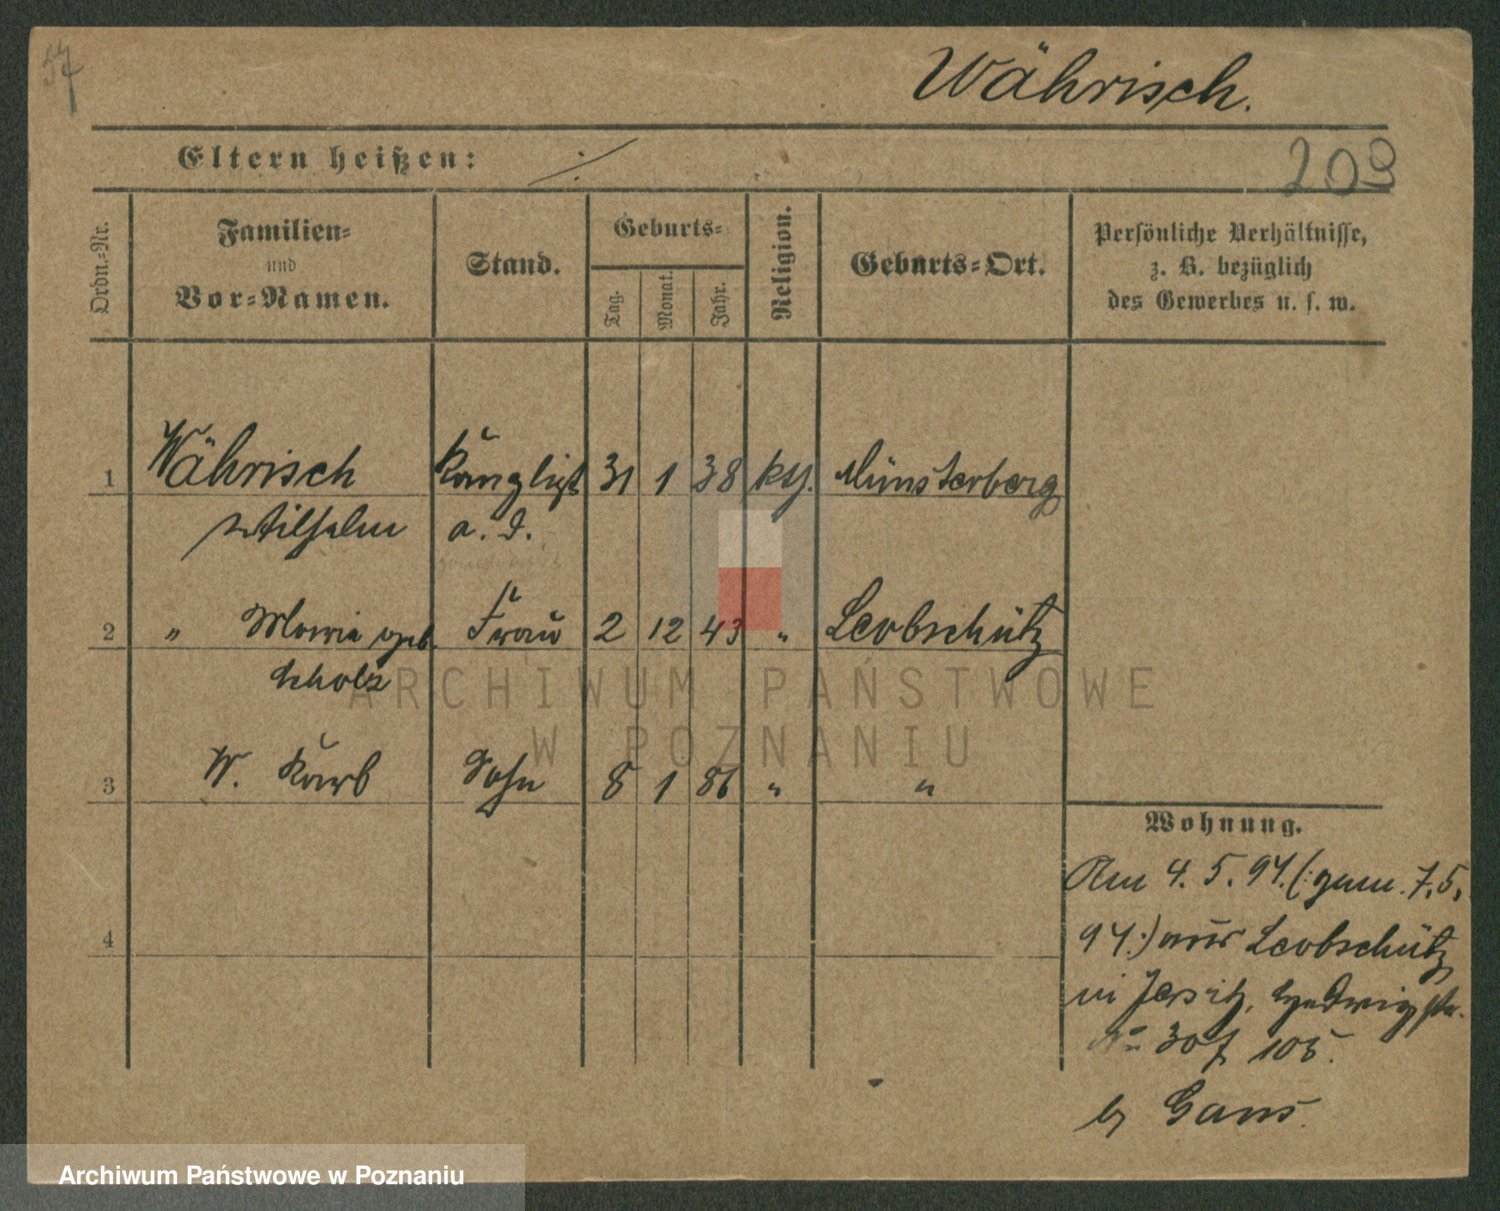 57
Währisch.
Eltern heißen: ./.
209
Ordn.-Nr.
Familien-
und
Vor-Namen.
Stand.
Geburts-
Tag.
Monat.
Jahr.
Religion.
Geburts-Ort.
Persönliche Verhältnisse,
z. B. bezüglich
des Gewerbes u. s. w.
1 Währisch 31 1 38 Münsterberg
Wilhelm a. D.
2 " Maria geb. Frau 2 12 43 " Leobschütz
3 W. Karl Sohn 8 1 86 " "
4
Wohnung.
Am 4. 5. 94. (: gem. 7. 5.
94 :) aus Leobschütz
in Jersitz, Hedwigstr.
No 30 105.
b/ Gans.
ARCHIWUM PAŃSTWOWE
W POZNANIU
Archiwum Państwowe w Poznaniu